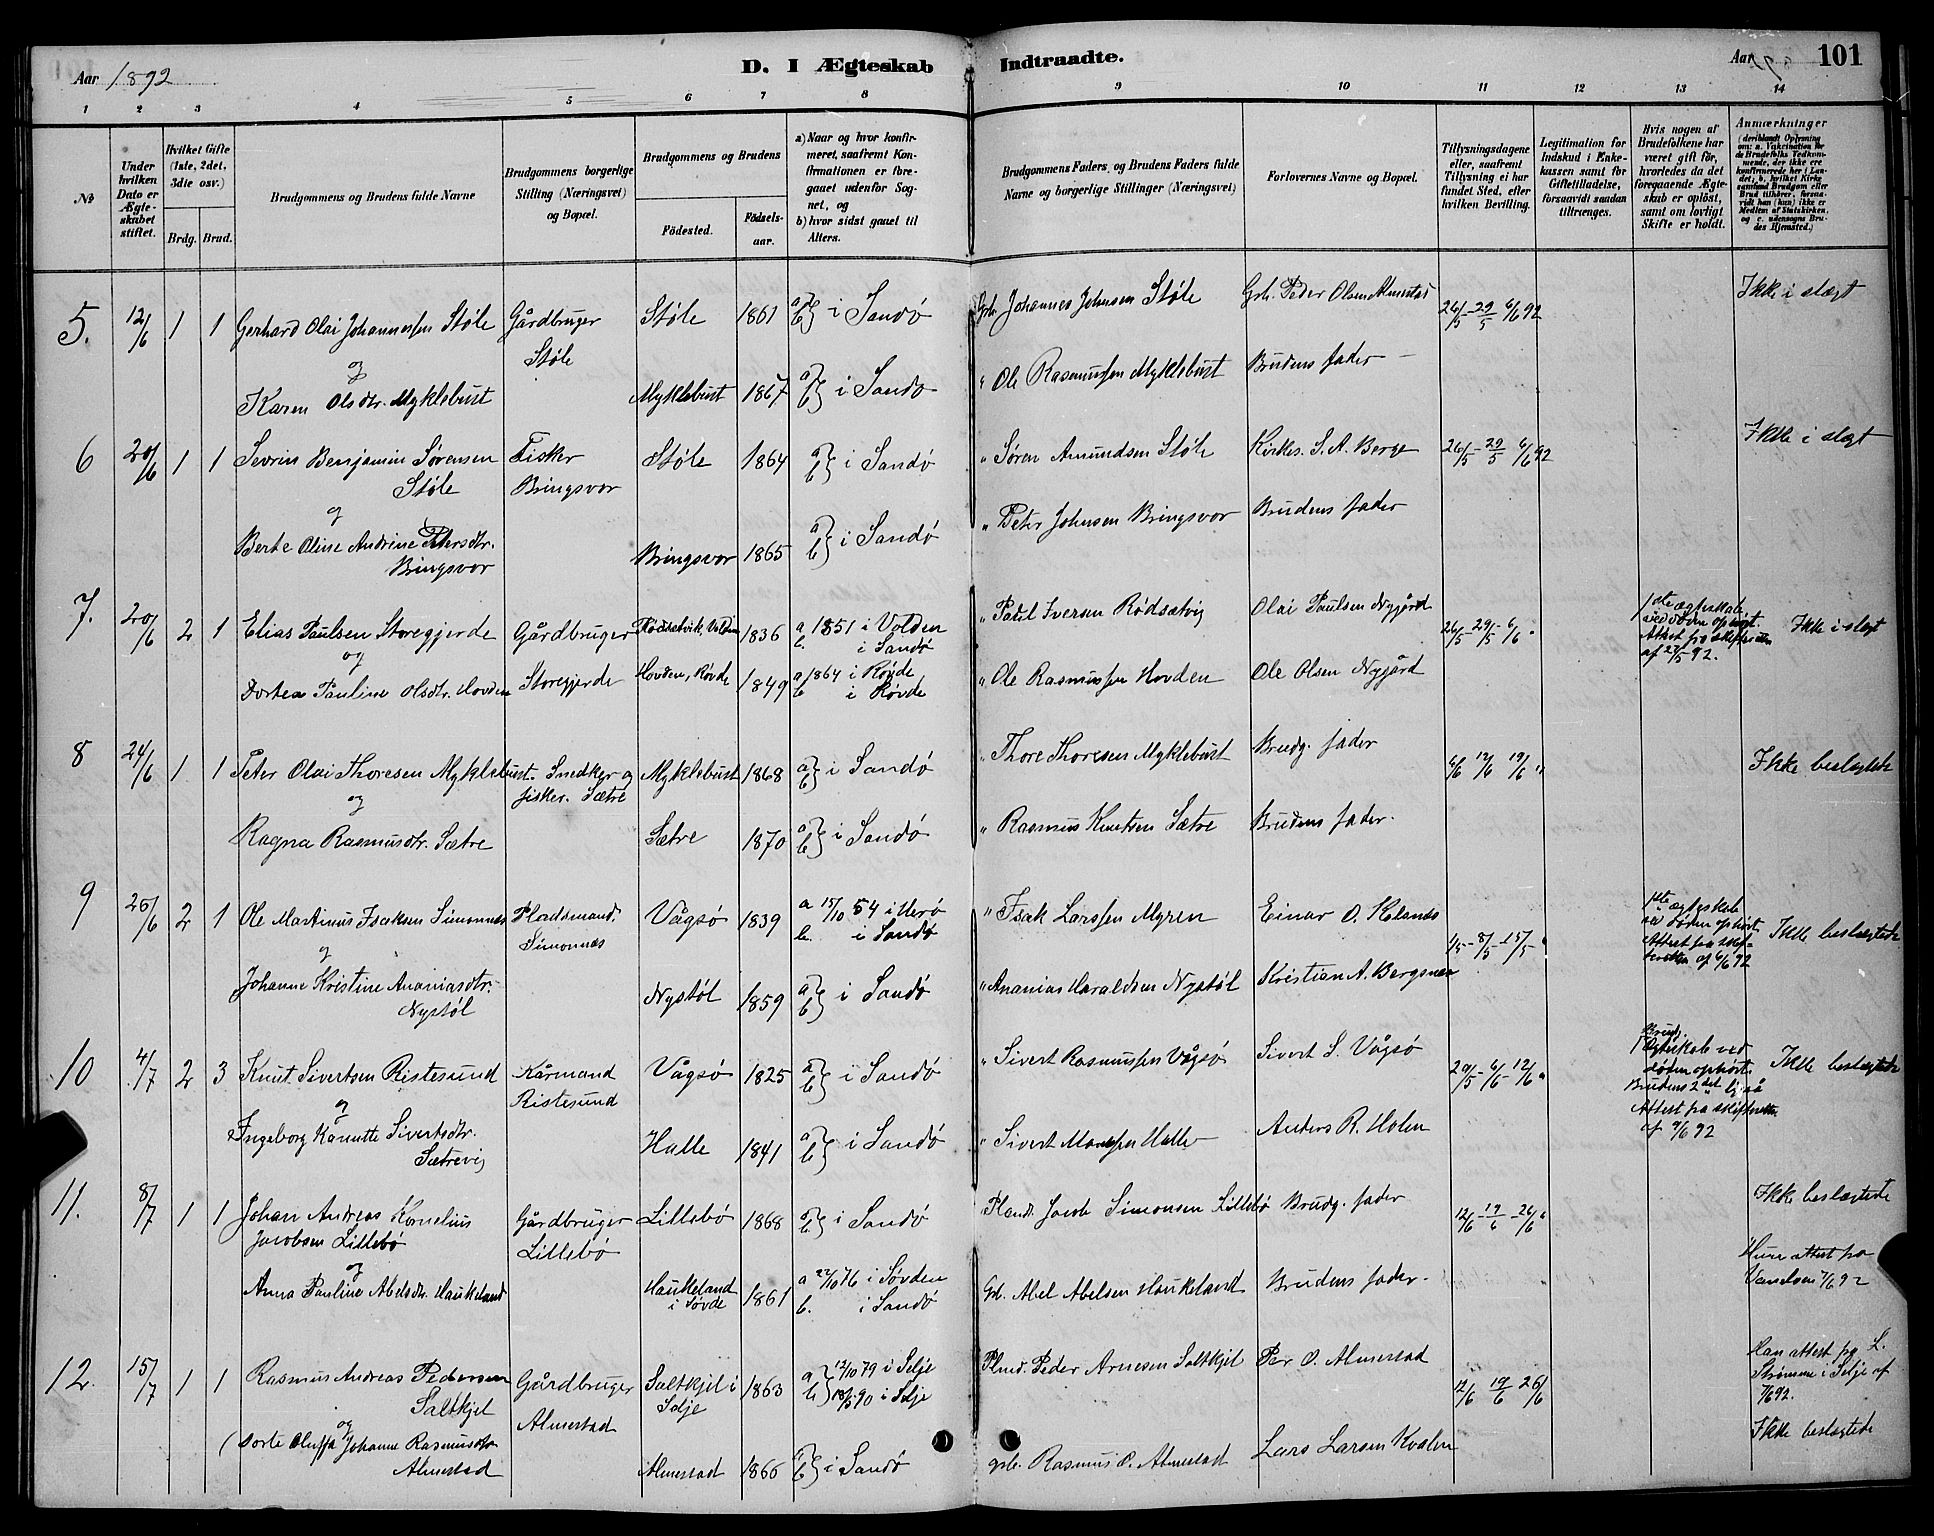 Aar 1892
D. I Ægteskab Indtraadte.
Aar 101
1 2 3 4 5 6 7 8 9 10 11 12 13 14
№
Under hvilken Dato er Ægteskabet stiftet.
Hvilket Gifte (1ste, 2det, 3die osv.)
Brdg. Brud.
Brudgommens og Brudens fulde Navne
Brudgommens borgerlige Stilling (Næringsvei) og Bopæl.
Brudgommens og Brudens
Födested. Födselsaar.
a) Naar og hvor konfirmeret, saafremt Konfirmationen er foregaaet udenfor Sognet, og
b) hvor sidst gaaet til Alters.
Brudgommens Faders, og Brudens Faders fulde Navne og borgerlige Stillinger (Næringsvei)
Forlovernes Navne og Bopæl.
Tillysningsdagene eller, saafremt Tillysning ei har fundet Sted, efter hvilken Bevilling.
Legitimation for Indskud i Enkekassen samt for Giftetilladelse, forsaavidt saadan tiltrænges.
Hvis nogen af Brudefolkene har været gift för, hvorledes da det foregaaende Ægteskab er oplöst, samt om lovligt Skifte er holdt.
Anmærkninger (deriblandt Oplysning om: a. Vakcination for de Brudefolks Vedkommende, der ikke ere konfirmerede her i Landet; b. hvilket Kirkesamfund Brudgom eller Brud tilhörer, forsaavidt han (hun) ikke er Medlem af Statskirken, og c. udensogns Brudes Hjemsted.)
5. 12/6 1 1 Gerhard Olai Johannessen Støle Gårdbruger Støle Støle 1861 a b } i Sandø Grb. Johannes Johnsen Støle Grb. Peder Olsen Almestad 26/5 - 29/5 6/6 92 Ikke i slægt
og
Karen Olsdtr. Myklebust Myklebust 1867 a b } i Sandø " Ole Rasmussen Myklebust Brudens fader
6 20/6 1 1 Sevrin Benjamin Sørensen Støle Fisker Bringsvor Støle 1864 a b } i Sandø " Søren Amundsen Støle Kirkes. S. A. Berge 26/5 - 29/5 6/6 92 Ikke i slægt
og
Berte Oline Andrine Petersdtr. Bringsvor Bringsvor 1865 a b } i Sandø " Peter Johnsen Bringsvor Brudens fader
7. 20/6 2 1 Elias Paulsen Storegjerde Gårdbruger Storegjerde Rødsætvik Volden 1836 a 1851 i Volden b. i Sandø " Paul Iversen Rødsætvig Olai Paulsen Nygjård 26/5 - 29/5 - 6/6 " 1ste ægteskab ved døden ophört. Attest fra skifteretten af 27/5 92. Ikke i slægt
og
Dortea Pauline Olsdtr. Hovden Hovden, Røvde 1849 a 1864 i Røvde b i Røvde " Ole Rasmussen Hovden Ole Olsen Nygjård
8 24/6 1 1 Peter Olai Thoresen Myklebust. Snedker og fisker. Sætre Myklebust 1868 a b } i Sandø " Thore Thoresen Myklebust Brudg. fader 6/6 12/6 19/6 " Ikke beslægtede
og
Ragna Rasmusdtr. Sætre Sætre 1870 a b } i Sandø " Rasmus Knutsen Sætre Brudens fader.
9 26/6 2 1 Ole Martinus Isaksen Simonnes Pladsmand. Simonnæs Vågsø 1839 a 15/10 54 i Herø b. i Sandø " Isak Larssen Myren Einar O. 1/5 - 8/5 - 15/5 " 1ste ægteskab ved døden ophört. Attest fra skifteretten af 6/6 92 Ikke beslægtede
og
Johanne Kristine Ananiasdtr. Nystøl Nystøl 1859 a b } i Sandø " Ananias Haraldsen Nystøl Kristian A. Bergsnes
10 4/7 2 3 Knut Sivertsen Ristesund Kårmand Ristesund Vågsø 1825 a b } i Sandø " Sivert Rasmussen Vågsø Sivert S. Vågsø 29/5 - 6/6 - 12/6 " Brudg. 1ste Ægteskab ved døden ophört. Brudens 2det ligeså Attest fra skifteretten af 9/6 92 Ikke beslægtede
og
Ingeborg Kanutte Sivertsdtr. Sætrevig Halle 1841 a b } i Sandø " Sivert Monssen Halle Anders R. Holen
11. 8/7 1 1 Johan Andreas Kornelius Jacobsen Lillebø Gårdbruger Lillebø Lillebø 1868 a b } i Sandø Plmd. Jacob Simonsen Lillebø Brudg. fader 12/6 - 19/6 - 26/6 " Ikke beslægtede
og
Anna Pauline Abelsdtr. Haukeland Haukeland i Søvde 1861 a 22/10 76 i Søvden b. i Sandø Gb. Abel Abelsen Haukeland Brudens fader. Hun attest fra Vanelven 7/6 92
12. 15/7 1 1 Rasmus Andreas Pedersen Saltkjel Gårdbruger Almestad Saltkjel i Selje 1863 a 12/10 79 i Selje b 18/5 90 i Selje Plmd. Peder Arnesen Saltkjel Per O. Almestad 12/6 19/6 26/6 Han attest fra L. Strømme i Selje af 7/6 92.
og
Dorte Oluffa Johanne Rasmusdtr. Almestad Almestad 1866 a b } i Sandø grb. Rasmus O. Almestad Lars Larsen Kvalen Ikke beslægtede